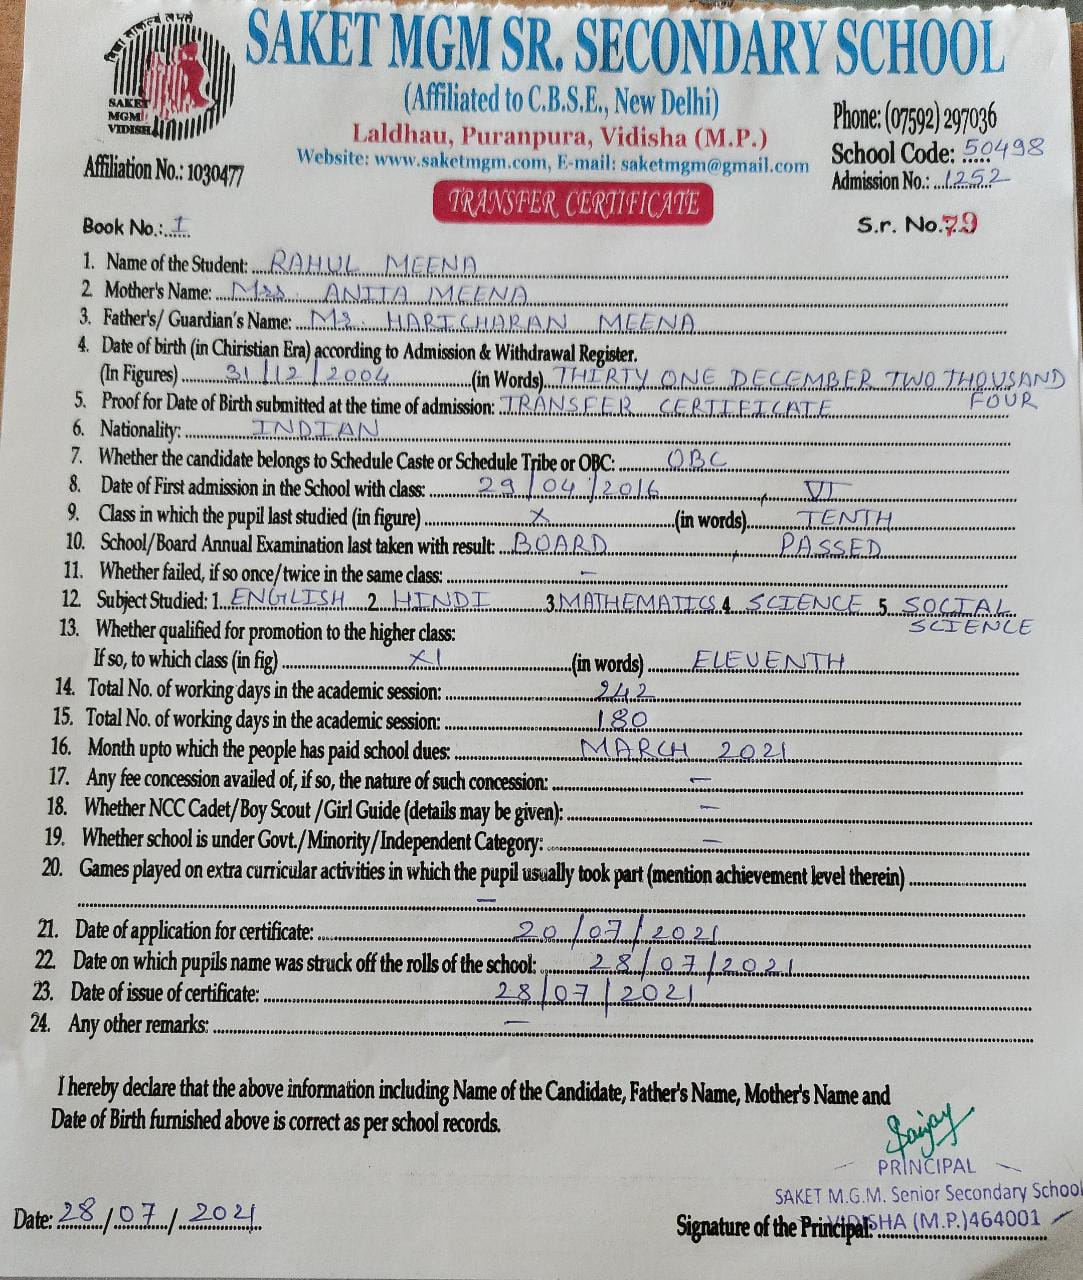 SAKET MGM SR. SECONDARY SCHOOL
(Affiliated to C.B.S.E., New Delhi)
Laldhau, Puranpura, Vidisha (M.P.)
Website: www.saketmgm.com, E-mail: saketmgm@gmail.com
SAKET
MGM
VIDISHA
Affiliation No.: 1030477
Phone: (07592) 297036
School Code: 50498
Admission No.: 1252
TRANSFER CERTIFICATE
Book No.: I
S.r. No. 79
1. Name of the Student: RAHUL MEENA
2. Mother's Name: Mrs. ANITA MEENA
3. Father's/ Guardian's Name: Mr. HARICHARAN MEENA
4. Date of birth (in Chiristian Era) according to Admission & Withdrawal Register.
(In Figures) 31/12/2004 (in Words) THIRTY ONE DECEMBER TWO THOUSAND
FOUR
5. Proof for Date of Birth submitted at the time of admission: TRANSFER CERTIFICATE
6. Nationality: INDIAN
7. Whether the candidate belongs to Schedule Caste or Schedule Tribe or OBC: OBC
8. Date of First admission in the School with class: 29/04/2016, VI
9. Class in which the pupil last studied (in figure) X (in words) TENTH
10. School/Board Annual Examination last taken with result: BOARD, PASSED
11. Whether failed, if so once/twice in the same class: -
12. Subject Studied: 1. ENGLISH 2. HINDI 3. MATHEMATICS 4. SCIENCE 5. SOCIAL
SCIENCE
13. Whether qualified for promotion to the higher class:
If so, to which class (in fig) XI (in words) ELEVENTH
14. Total No. of working days in the academic session: 242
15. Total No. of working days in the academic session: 180
16. Month upto which the people has paid school dues: MARCH 2021
17. Any fee concession availed of, if so, the nature of such concession: -
18. Whether NCC Cadet/Boy Scout /Girl Guide (details may be given): -
19. Whether school is under Govt./Minority/Independent Category: -
20. Games played on extra curricular activities in which the pupil usually took part (mention achievement level therein)
-
21. Date of application for certificate: 20/07/2021
22. Date on which pupils name was struck off the rolls of the school: 28/07/2021
23. Date of issue of certificate: 28/07/2021
24. Any other remarks: -
I hereby declare that the above information including Name of the Candidate, Father's Name, Mother's Name and
Date of Birth furnished above is correct as per school records.
PRINCIPAL
SAKET M.G.M. Senior Secondary School
VIDISHA (M.P.)464001
Date: 28/07/2021
Signature of the Principal: